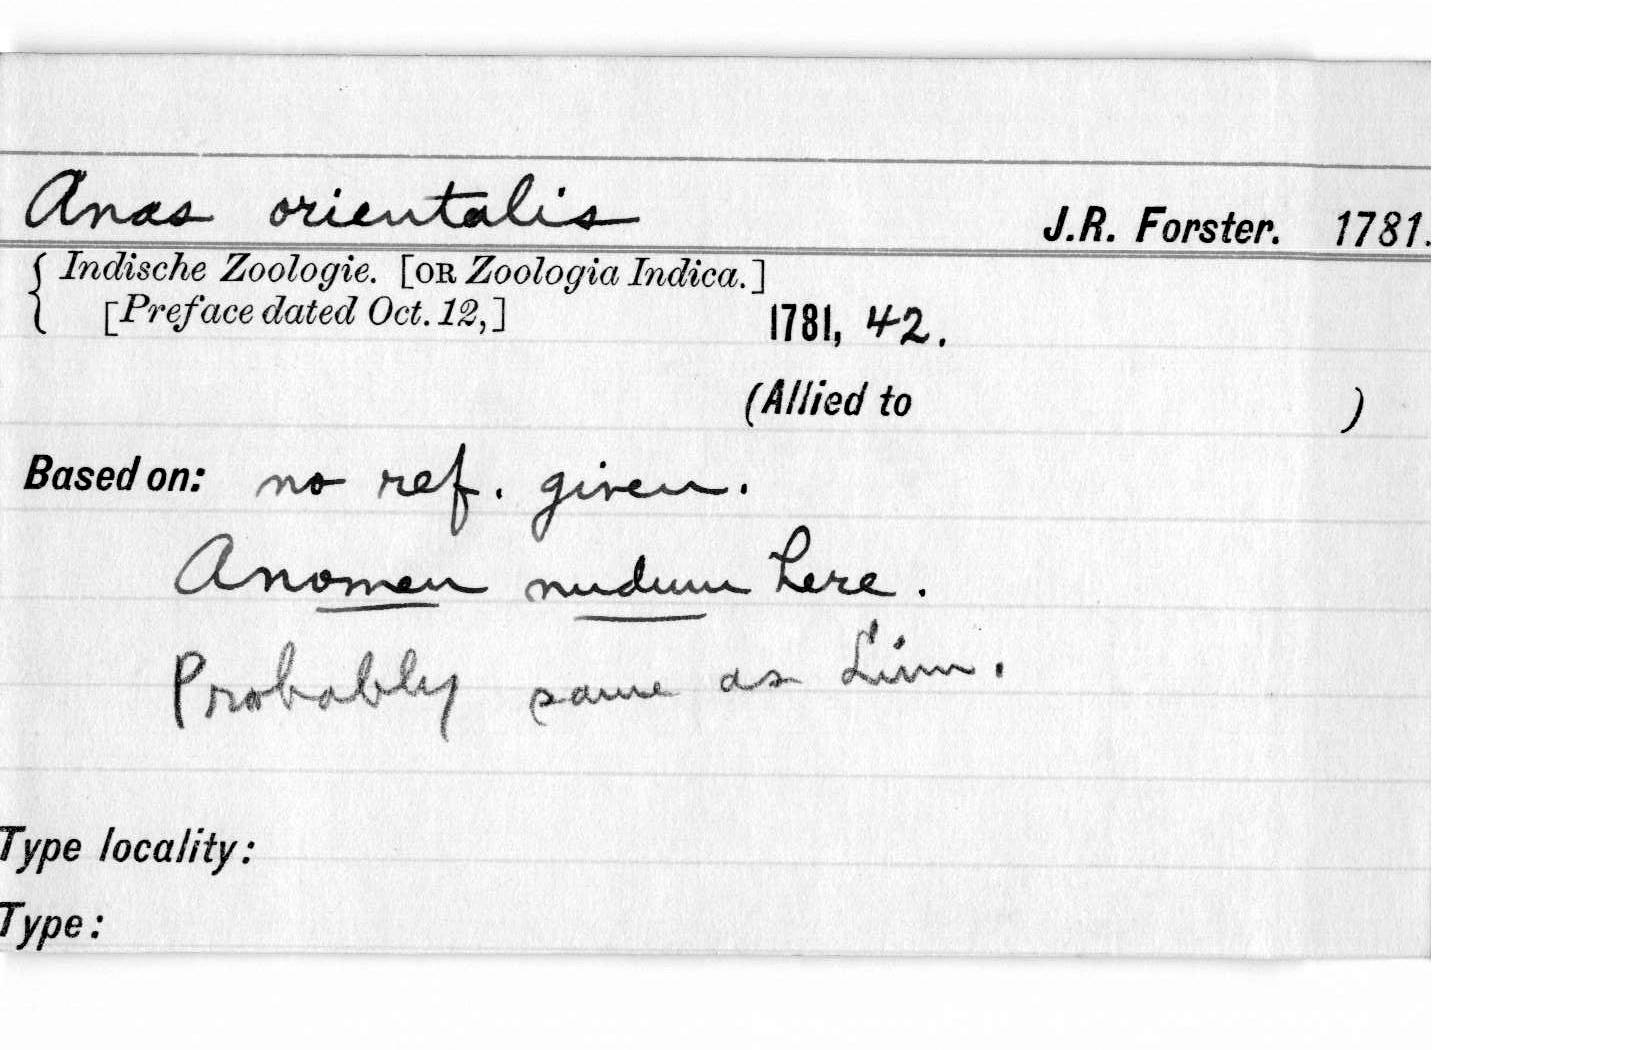 Anas orientalis J.R. Forster. 1781.
{ Indische Zoologie. [OR Zoologia Indica.]
[Preface dated Oct. 12,] 1781, 42.
(Allied to )
Based on: no ref. given.
A nomen nudum here.
Probably same as Linn.
Type locality:
Type: